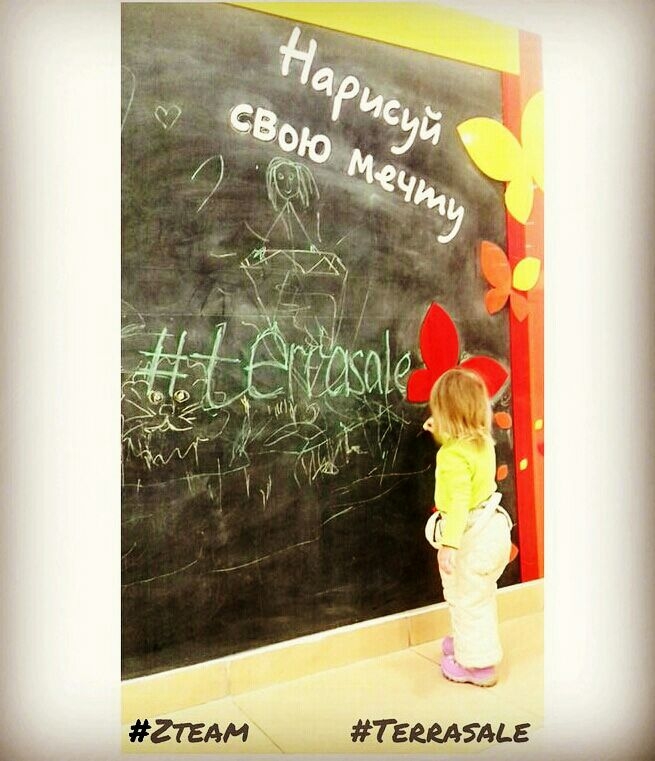 Нарисуй
свою мечту
#terrasale
#Zteam #Terrasale